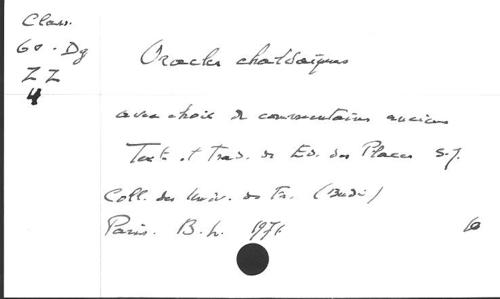 Class.
60. Dg
ZZ
4
Oracles chaldaïques
avec choix de commentaires anciens
Texte et trad. de Ed. des Places S.J.
Coll. des Univ. de Fr. (Budé)
Paris. B.L. 1971